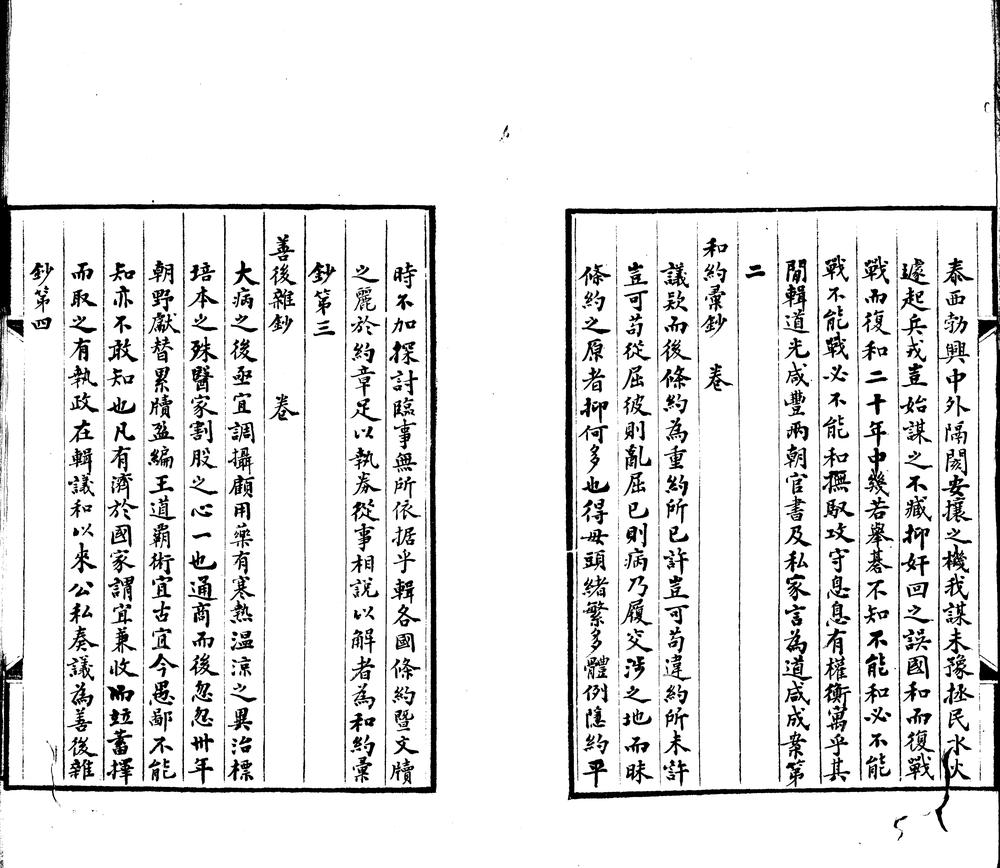 泰西勃興中外隔閡安攘之機我謀未豫拯民水火
遽起兵戎豈始謀之不臧抑奸回之誤國和而復戰
戰而復和二十年中幾若舉棊不知不能和必不能
戰不能戰必不能和撫馭攻守息息有權衡萬乎其
間輯道光咸豐兩朝官書及私家言為道咸成案第
二
和約彙鈔 卷
議欵而後條約為重約所已許豈可苟違約所未許
豈可苟從屈彼則亂屈已則病乃履交涉之地而昧
條約之原者抑何多也得毋頭緒繁多體例隱約平
時不加探討臨事無所依据乎輯各國條約暨文牘
之麗於約章足以執券從事相說以解者為和約彙
鈔第三
善後雜鈔 卷
大病之後亟宜調攝顧用藥有寒熱温涼之異治標
培本之殊醫家割股之心一也通商而後忽忽卅年
朝野獻替累牘盈編王道霸術宜古宜今愚鄙不能
知亦不敢知也凡有濟於國家謂宜兼收而竝蓄擇
而取之有執政在輯議和以來公私奏議為善後雜
鈔第四
5